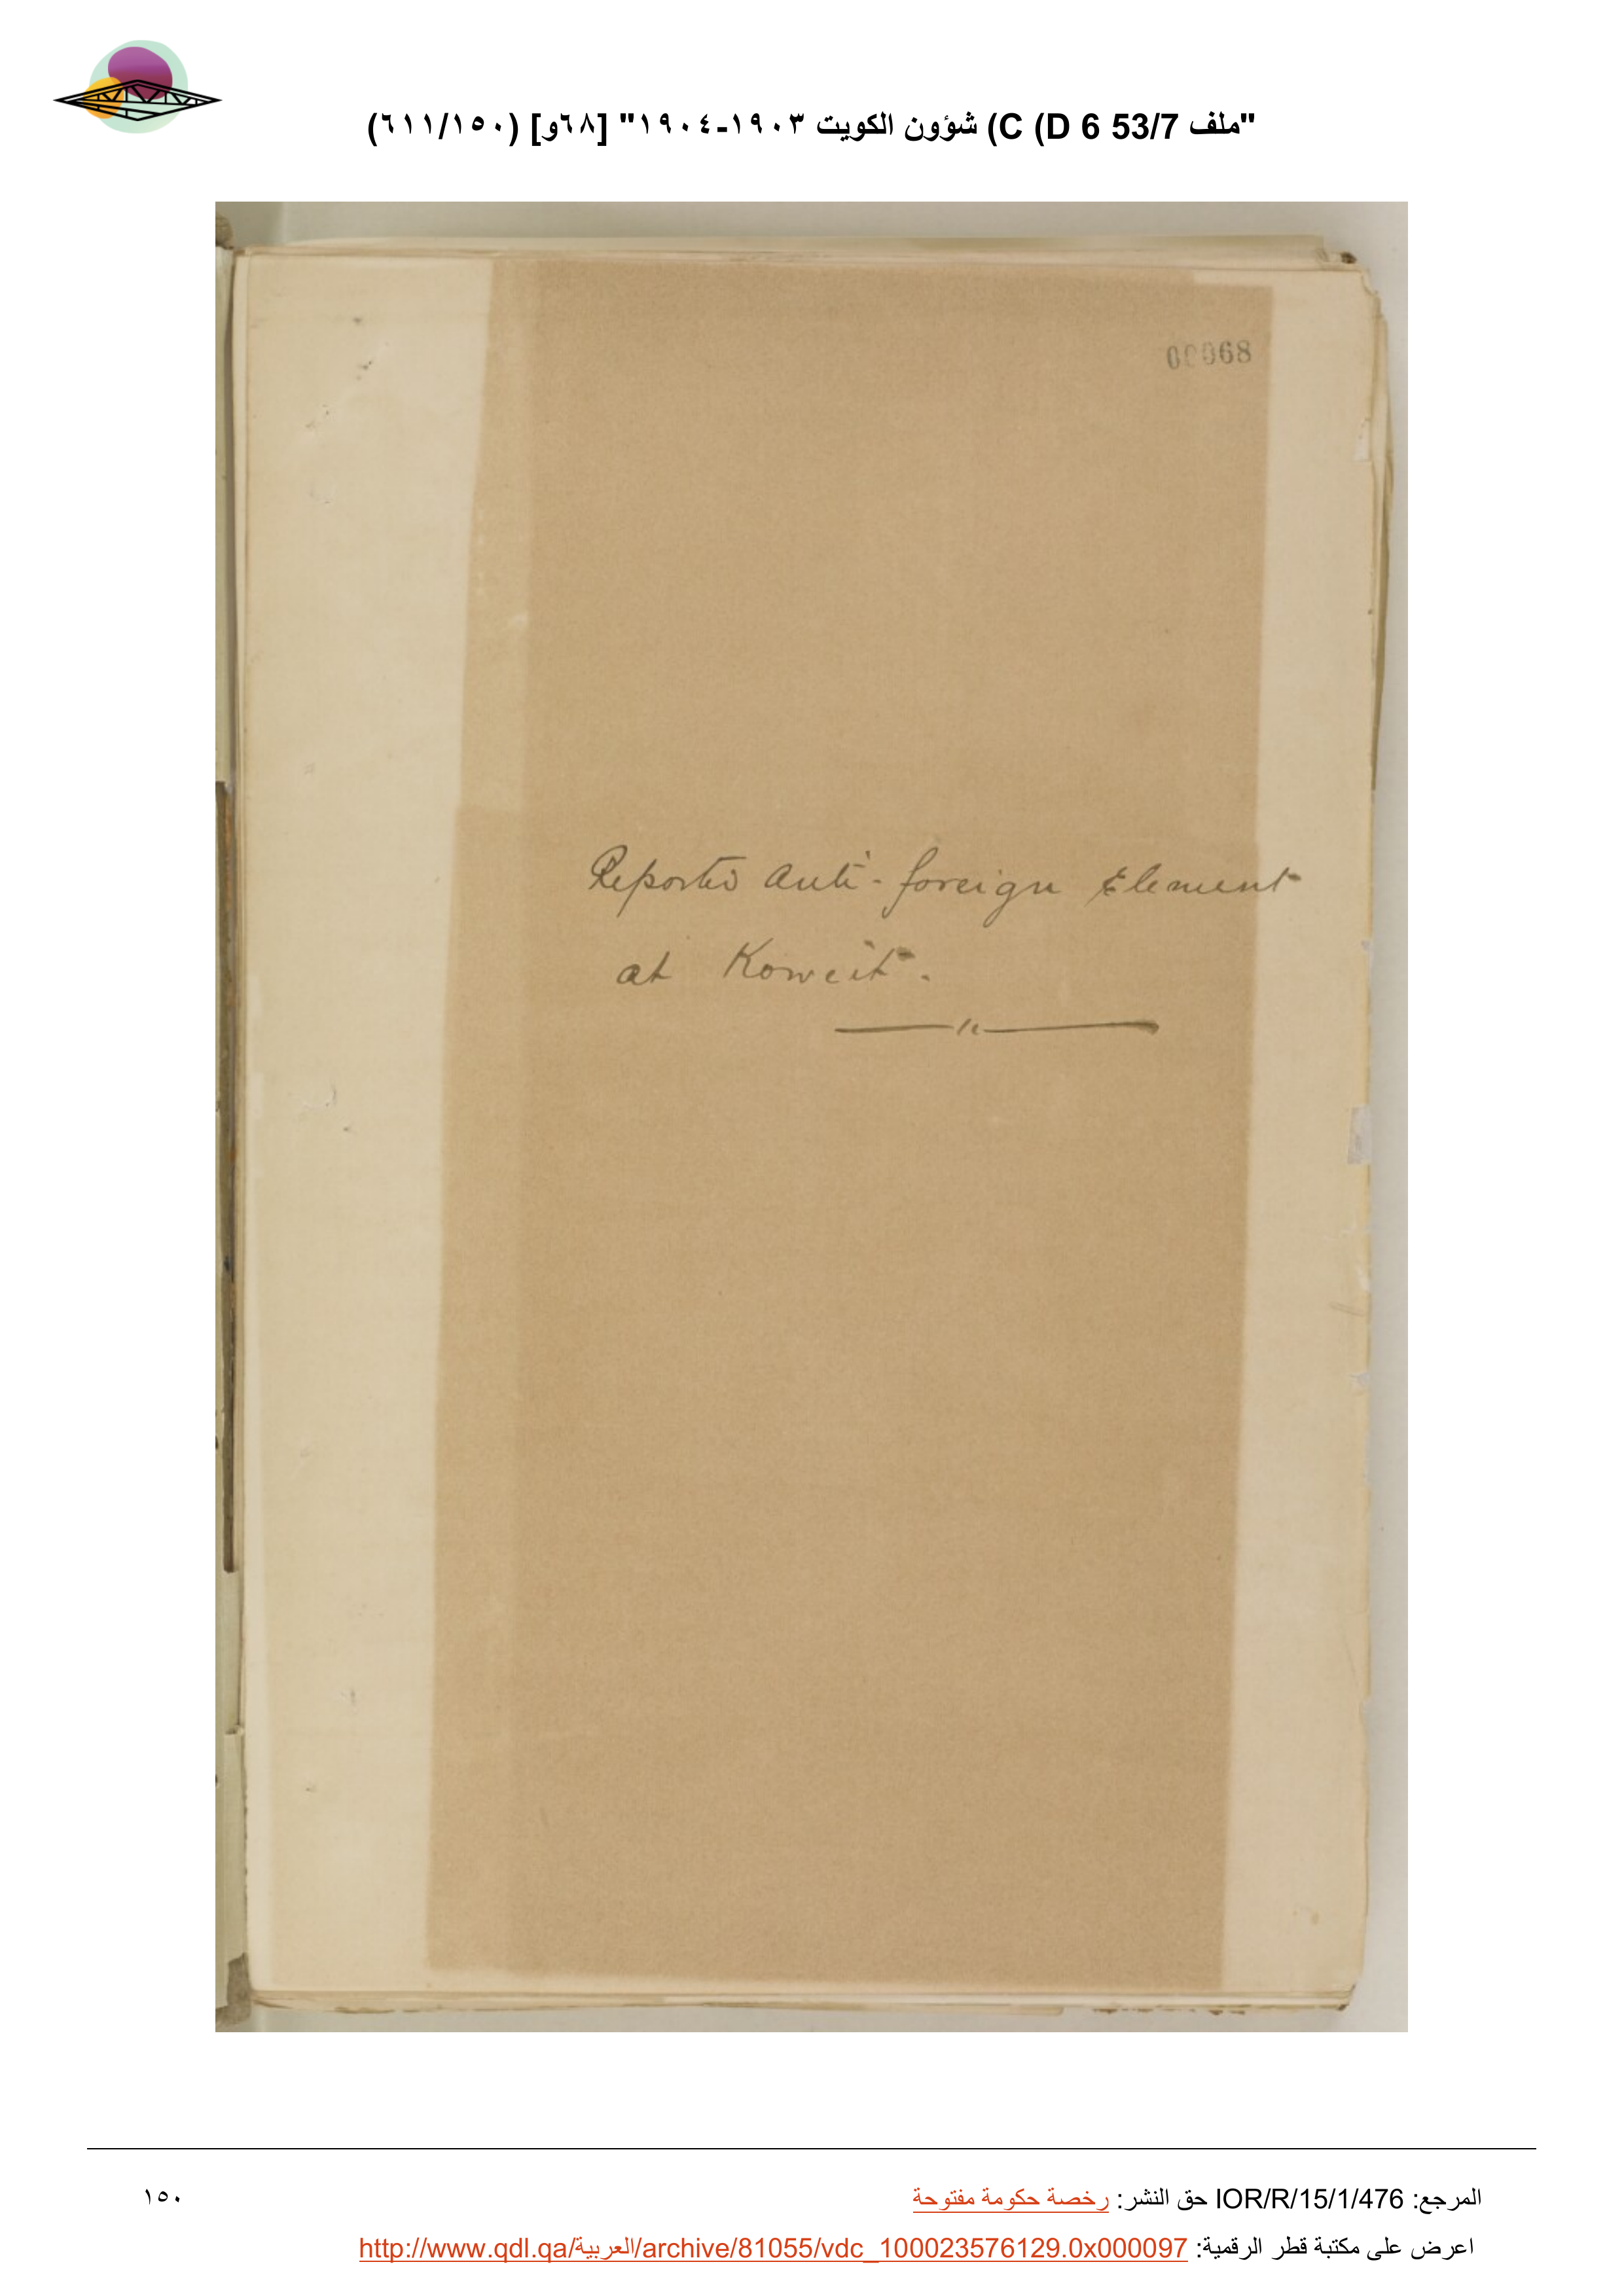 "ملف 53/7 C (D 6) شؤون الكويت ١٩٠٣-١٩٠٤" [٦٨و] (٦١١/١٥٠)
00068
Reported Anti-foreign Element
at Koweit.
المرجع: IOR/R/15/1/476 حق النشر: رخصة حكومة مفتوحة
١٥٠
اعرض على مكتبة قطر الرقمية: http://www.qdl.qa/العربية/archive/81055/vdc_100023576129.0x000097